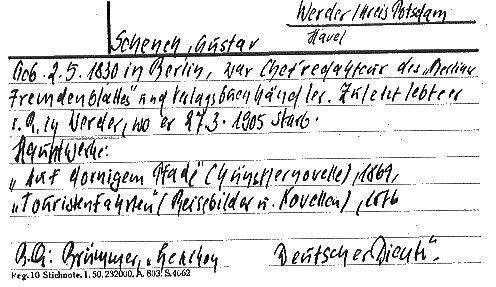 Werder/Kreis Potsdam
Havel
Schenck, Gustav
Geb. 2.5.1830 in Berlin, war Chefredakteur des „Berliner
Fremdenblattes" und Verlagsbuchhändler. Zuletzt lebte er
i.R. in Werder, wo er 27.3.1905 starb.
Hauptwerke:
„Auf dornigem Pfade" (Künstlernovelle), 1869,
„Touristenfahrten" (Reisebilder u. Novellen), 1876
B.A: Brümmer, „Lexikon Deutscher Dicht".
Reg. 10 Stichnote. 1. 50. 232000. A. 803. S. 4662